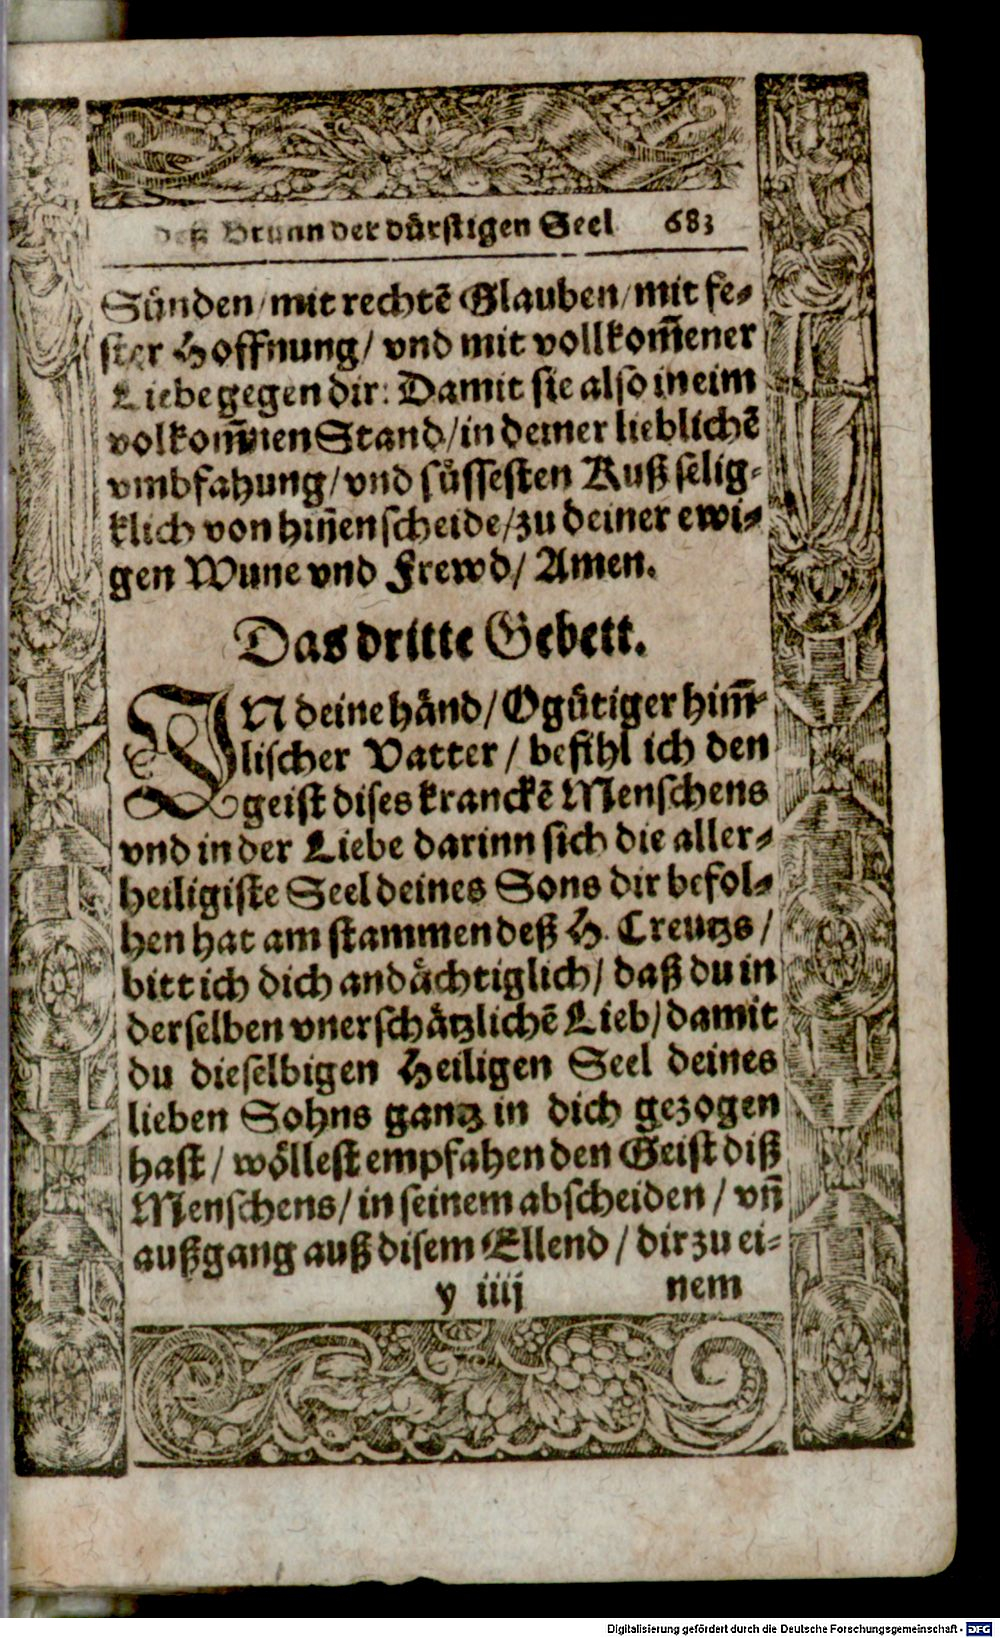 deß Brunn der dürstigen Seel 683
Sünden/mit rechtē Glauben/mit fe-
ster Hoffnung/ vnd mit vollkom̄ener
Liebe gegen dir: Damit sie also in eim
volkom̄nen Stand/in deiner lieblichē
vmbfahung/vnd süssesten Kuß selig-
klich von hiñen scheide/zu deiner ewi-
gen Wune vnd Frewd/ Amen.
Das dritte Gebett.
IN deine händ/O gütiger him̄-
lischer Vatter / befihl ich den
geist dises kranckē Menschens
vnd in der Liebe darinn sich die aller-
heiligiste Seel deines Sons dir befol-
hen hat am stammen deß H. Creutzs /
bitt ich dich andächtiglich/ daß du in
derselben vnerschätzlichē Lieb/damit
du dieselbigen Heiligen Seel deines
lieben Sohns gantz in dich gezogen
hast / wöllest empfahen den Geist diß
Menschens/in seinem abscheiden / vñ
außgang auß disem Ellend / dir zu ei-
y iiij nem
Digitalisierung gefördert durch die Deutsche Forschungsgemeinschaft - DFG